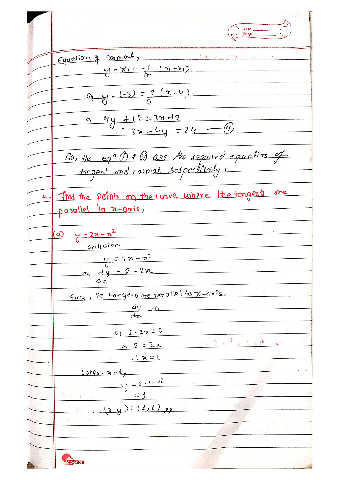 Equation of normal,
y - x₁ = -1/
or y - (-3) =
or 4y + 12 = 3x - 12
3x - 4y = 24 — (ii)
So, the eqⁿ (i) & (ii) are the required equations of
tangent and normal respectively.
Find the points on the curve where the tangents are
parallel to x-axis,
(a) y = 2x - x²
solution
y = 2x - x²
or dy/dx = 2 - 2x
Since, tangents are parallel to x-axis.
dy/dx = 0
or 2 - 2x = 0
or 2 = 2x
x = 1
x = 1,
= 1
(x, y) = (1, 1)